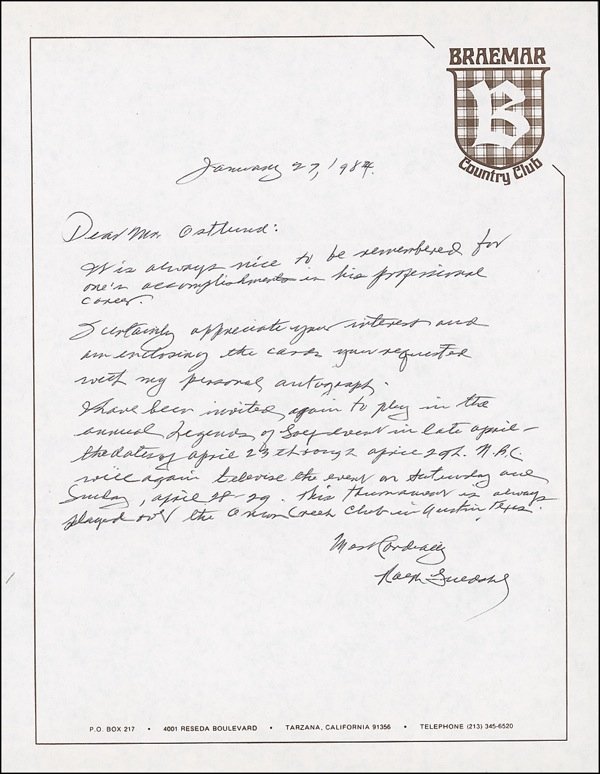 BRAEMAR
B
Country Club
January 27, 1984.
Dear Mr. Ostlund:
It is always nice to be remembered for
one's accomplishments in his professional
career.
I certainly appreciate your interest and
am enclosing the cards you requested
with my personal autograph.
I have been invited again to play in the
annual Legends of Golf event in late april –
the dates of april 23 through april 29th. N.B.C.
will again televise the event on Saturday and
Sunday, april 28-29. This tournament is always
played over the Onion Creek Club in Austin, Texas.
Most Cordially
Ralph Guldahl
P.O. BOX 217 • 4001 RESEDA BOULEVARD • TARZANA, CALIFORNIA 91356 • TELEPHONE (213) 345-6520